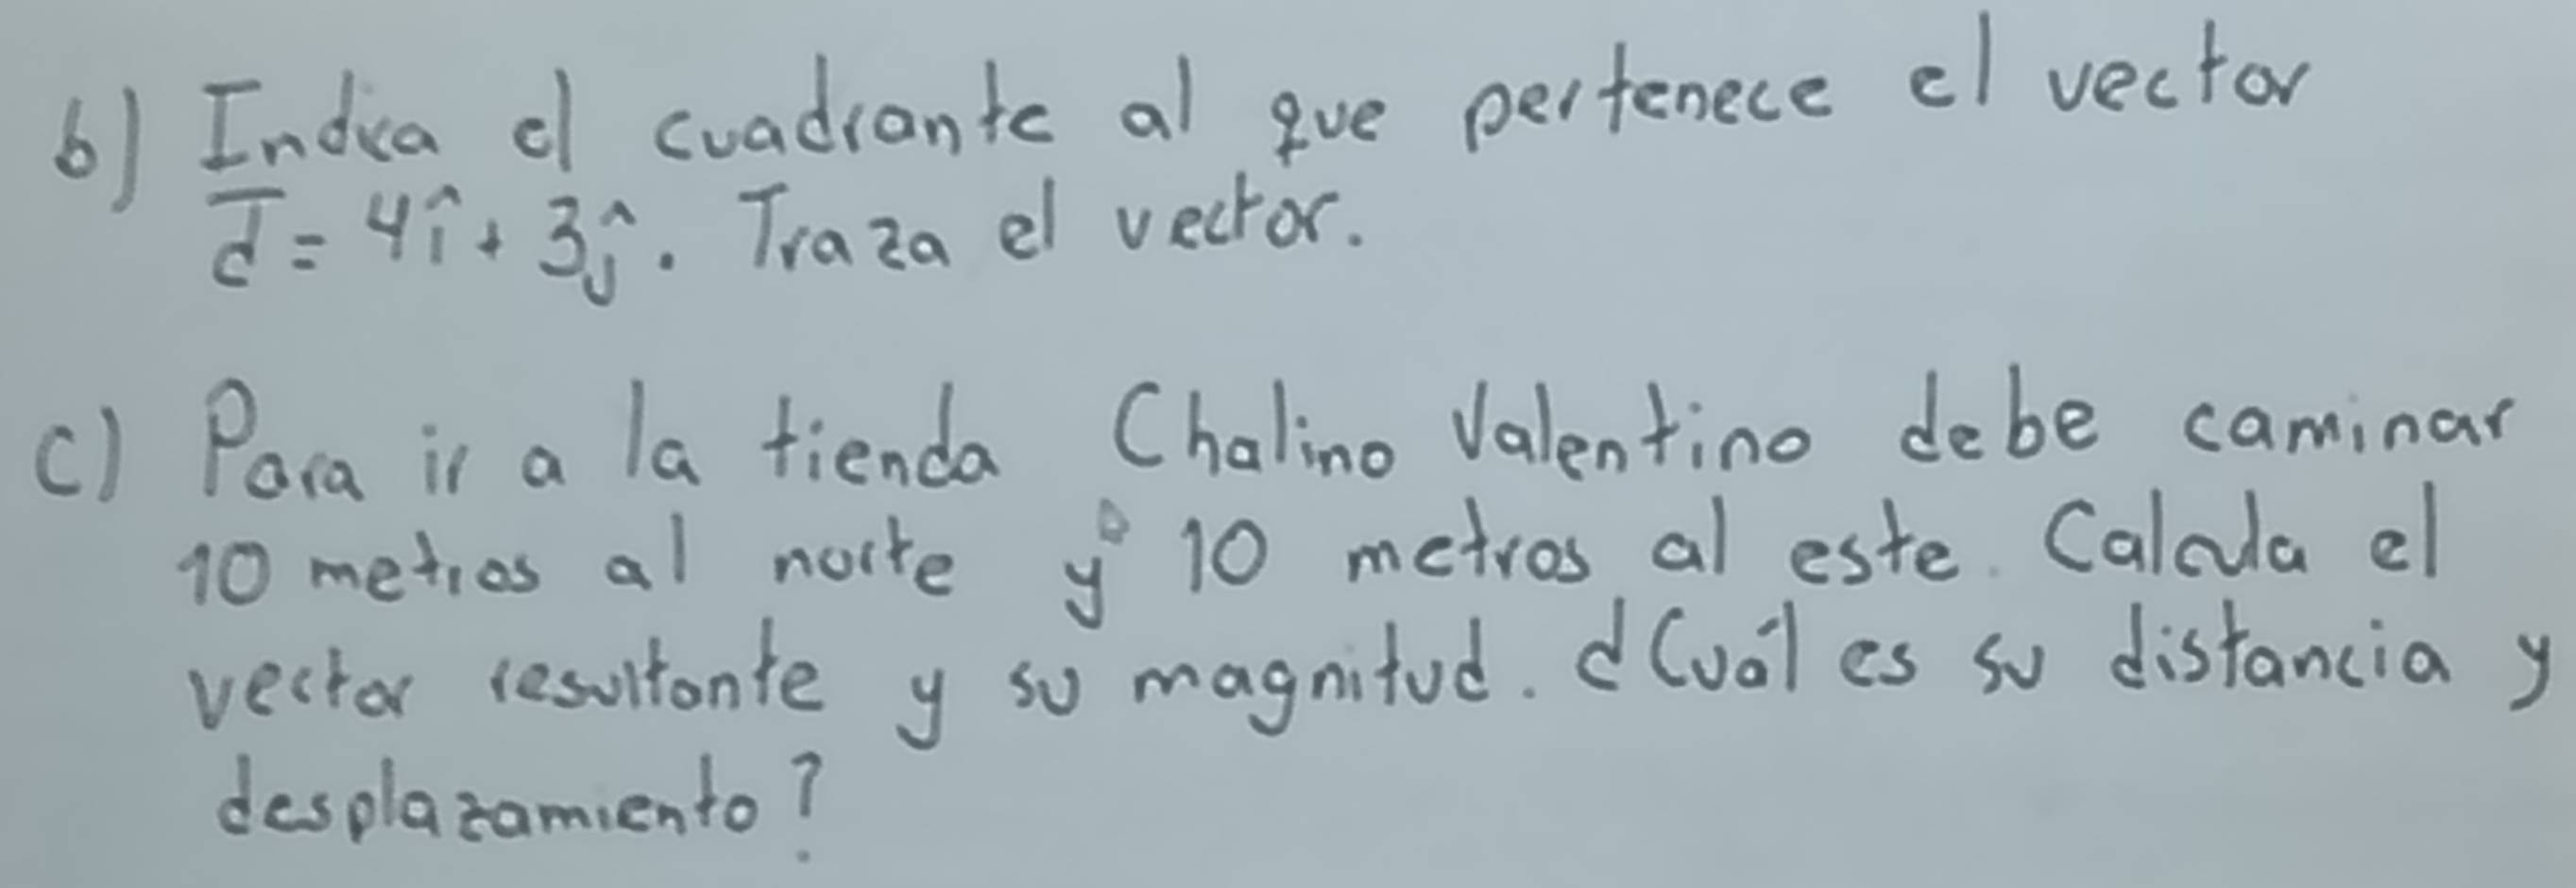 b) Indica el cuadrante al que pertenece el vector
d̅ = 4î + 3ĵ. Traza el vector.
c) Para ir a la tienda Chalino Valentino debe caminar
10 metros al norte y 10 metros al este. Calcula el
vector resultante y su magnitud. ¿Cuál es su distancia y
desplazamiento?